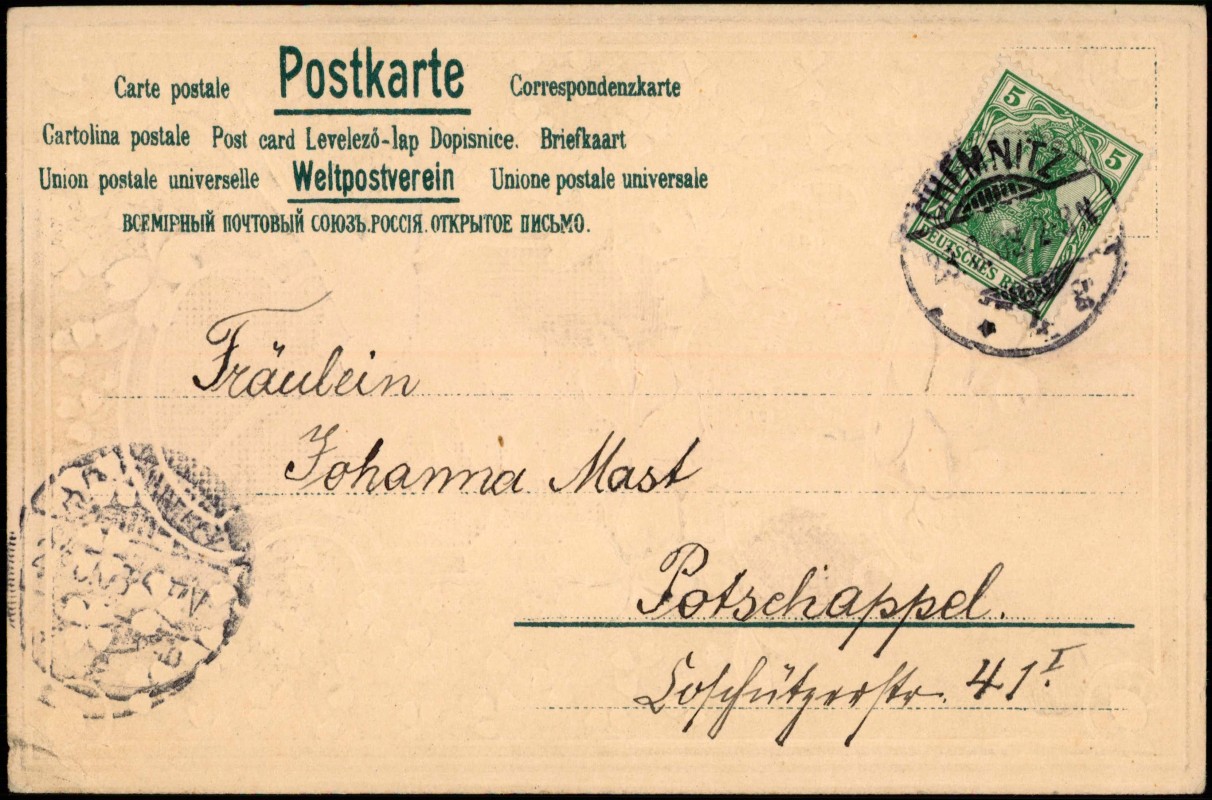 Carte postale Postkarte Correspondenzkarte
Cartolina postale Post card Levelező-lap Dopisnice. Briefkaart
Union postale universelle Weltpostverein Unione postale universale
ВСЕМІРНЫЙ ПОЧТОВЫЙ СОЮЗЪ.РОССІЯ. ОТКРЫТОЕ ПИСЬМО.
5 5
DEUTSCHES
CHEMNITZ
Fräulein
Johanna Mast
Potschappel.
Coschützerstr. 41 I.